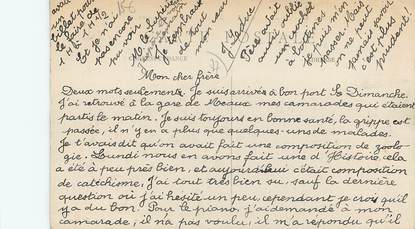 billet pour
le
1 H à 1 H 1/2
Et je n'ai
pas
pu
vous
de tout
mon
J.
Père a fait
aussi
à
et puis m'en
passer Mais
on ne
jamais savoir
c'est plus
prudent!
Mon cher frère
Deux mots seulement. Je suis arrivé à bon port le Dimanche.
J'ai retrouvé à la gare de Meaux mes camarades qui étaient
partis le matin. Je suis toujours en bonne santé, la grippe est
passée, il n'y en a plus que quelques-uns de malades.
Je t'avais dit qu'on avait fait une composition de zoolo-
gie, Lundi nous en avons fait une d'Histoire, ela
a été à peu près bien, et aujourd'hui c'était composition
de catéchisme, j'ai tout très bien su, sauf la dernière
question où j'ai hésité un peu, cependant je crois qu'il
y a du bon. Pour le piano, j'ai demandé à mon
camarade, il n'a pas voulu, il m'a repondu qu'il